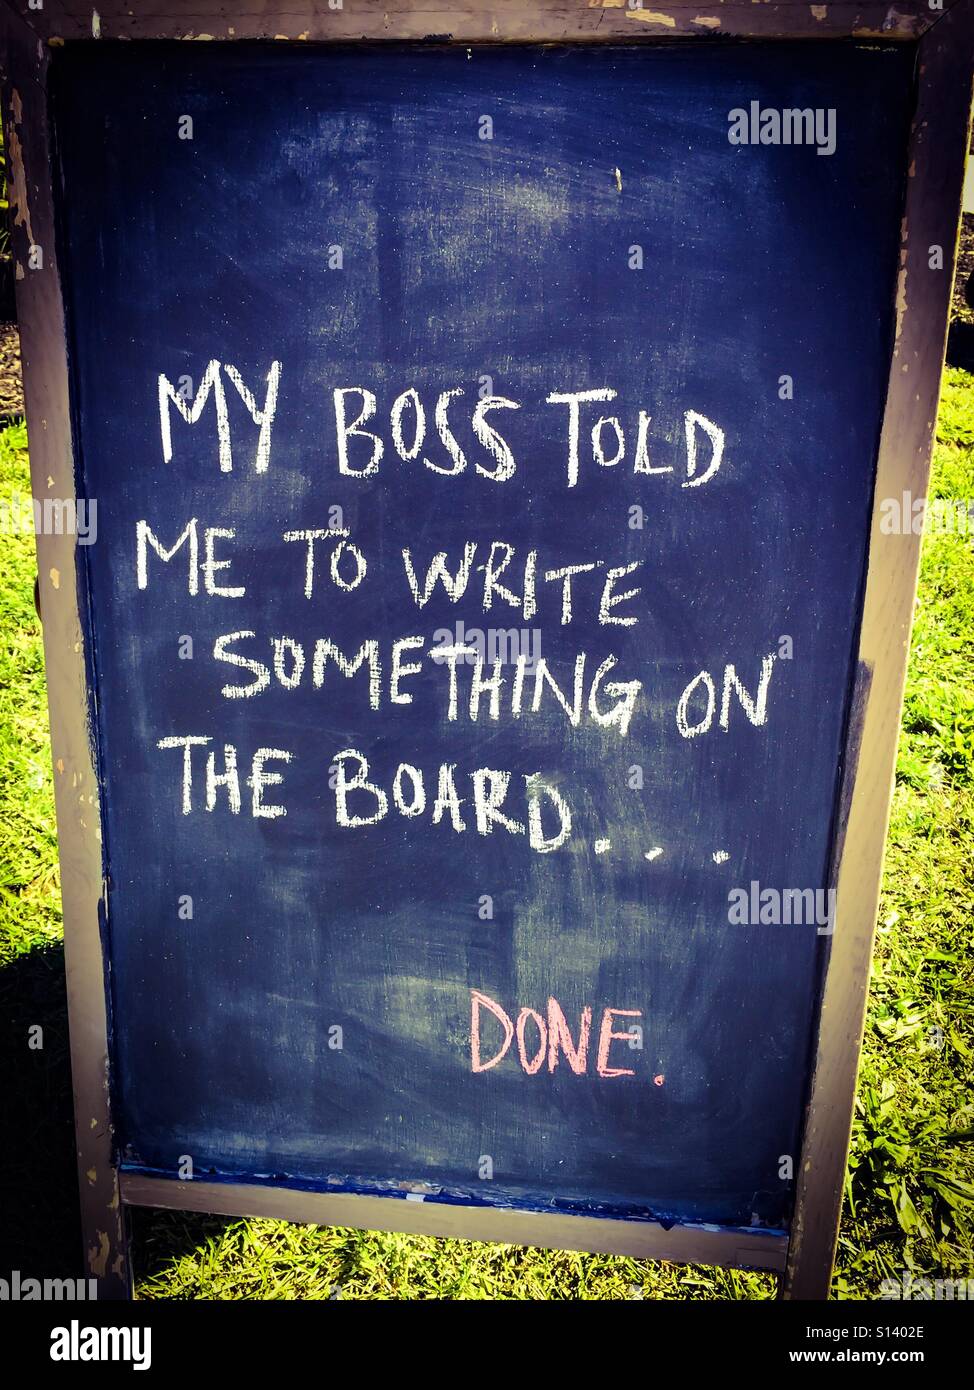 alamy
MY BOSS TOLD
ME TO WRITE
SOMETHING ON
THE BOARD....
DONE.
alamy
alamy
Image ID: S1402E
www.alamy.com